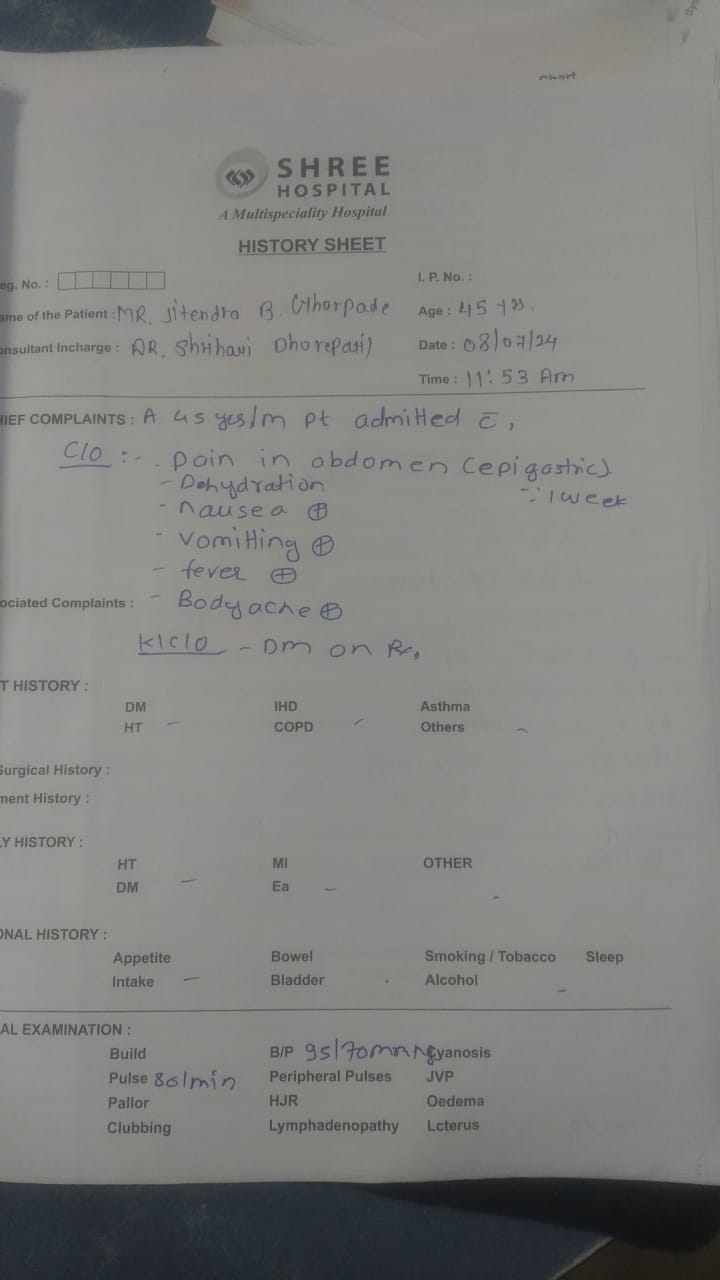 chart
SHREE
HOSPITAL
A Multispeciality Hospital
HISTORY SHEET
eg. No. : I. P. No. :
ame of the Patient : MR. Jitendra B. Ghorpade Age : 45 yrs.
onsultant Incharge : DR. Shrihari Dhorepatil Date : 08/07/24
Time : 11:53 Am
HIEF COMPLAINTS : A 45 yrs/m pt admitted c̄,
C/o :- - pain in abdomen (epigastric).
- Dehydration ∵ 1 week
- nausea ⊕
- vomitting ⊕
- fever ⊕
ociated Complaints : - Bodyache ⊕
K/C/O - DM on Rx,
T HISTORY :
DM IHD Asthma
HT - COPD - Others -
Surgical History :
ment History :
LY HISTORY :
HT MI OTHER
DM - Ea - -
ONAL HISTORY :
Appetite Bowel Smoking / Tobacco Sleep
Intake - Bladder . Alcohol -
AL EXAMINATION :
Build B/P 95/70mmHg Cyanosis
Pulse 80/min Peripheral Pulses JVP
Pallor HJR Oedema
Clubbing Lymphadenopathy Lcterus